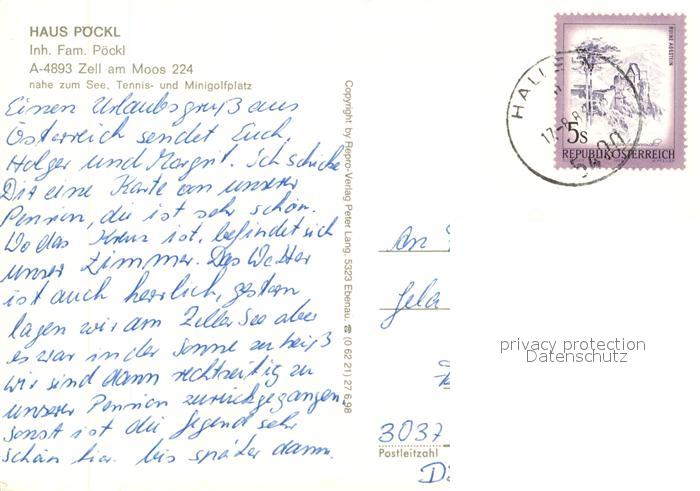 HAUS PÖCKL
Inh. Fam. Pöckl
A-4893 Zell am Moos 224
nahe zum See, Tennis- und Minigolfplatz
Einen Urlaubsgruß aus
Österreich sendet Euch,
Holger und Margrit. Ich schicke
Dir eine Karte von unserer
Pension, die ist sehr schön.
Wo das Kreuz ist, befindet sich
unser Zimmer. Das Wetter
ist auch herrlich, gestern
lagen wir am Zeller See aber
es war in der Sonne zu heiß
wir sind dann rechtzeitig zu
unserer Pension zurückgegangen.
Sonst ist die Gegend sehr
schön hier. bis später dann.
Copyright by Repro-Verlag Peter Lang, 5323 Ebenau, ☎ (0 62 21) 27 6 98
RUINE AGGSTEIN
5s
REPUBLIK ÖSTERREICH
HALL
17.-8.8
5400
An
3037
Postleitzahl
privacy protection
Datenschutz